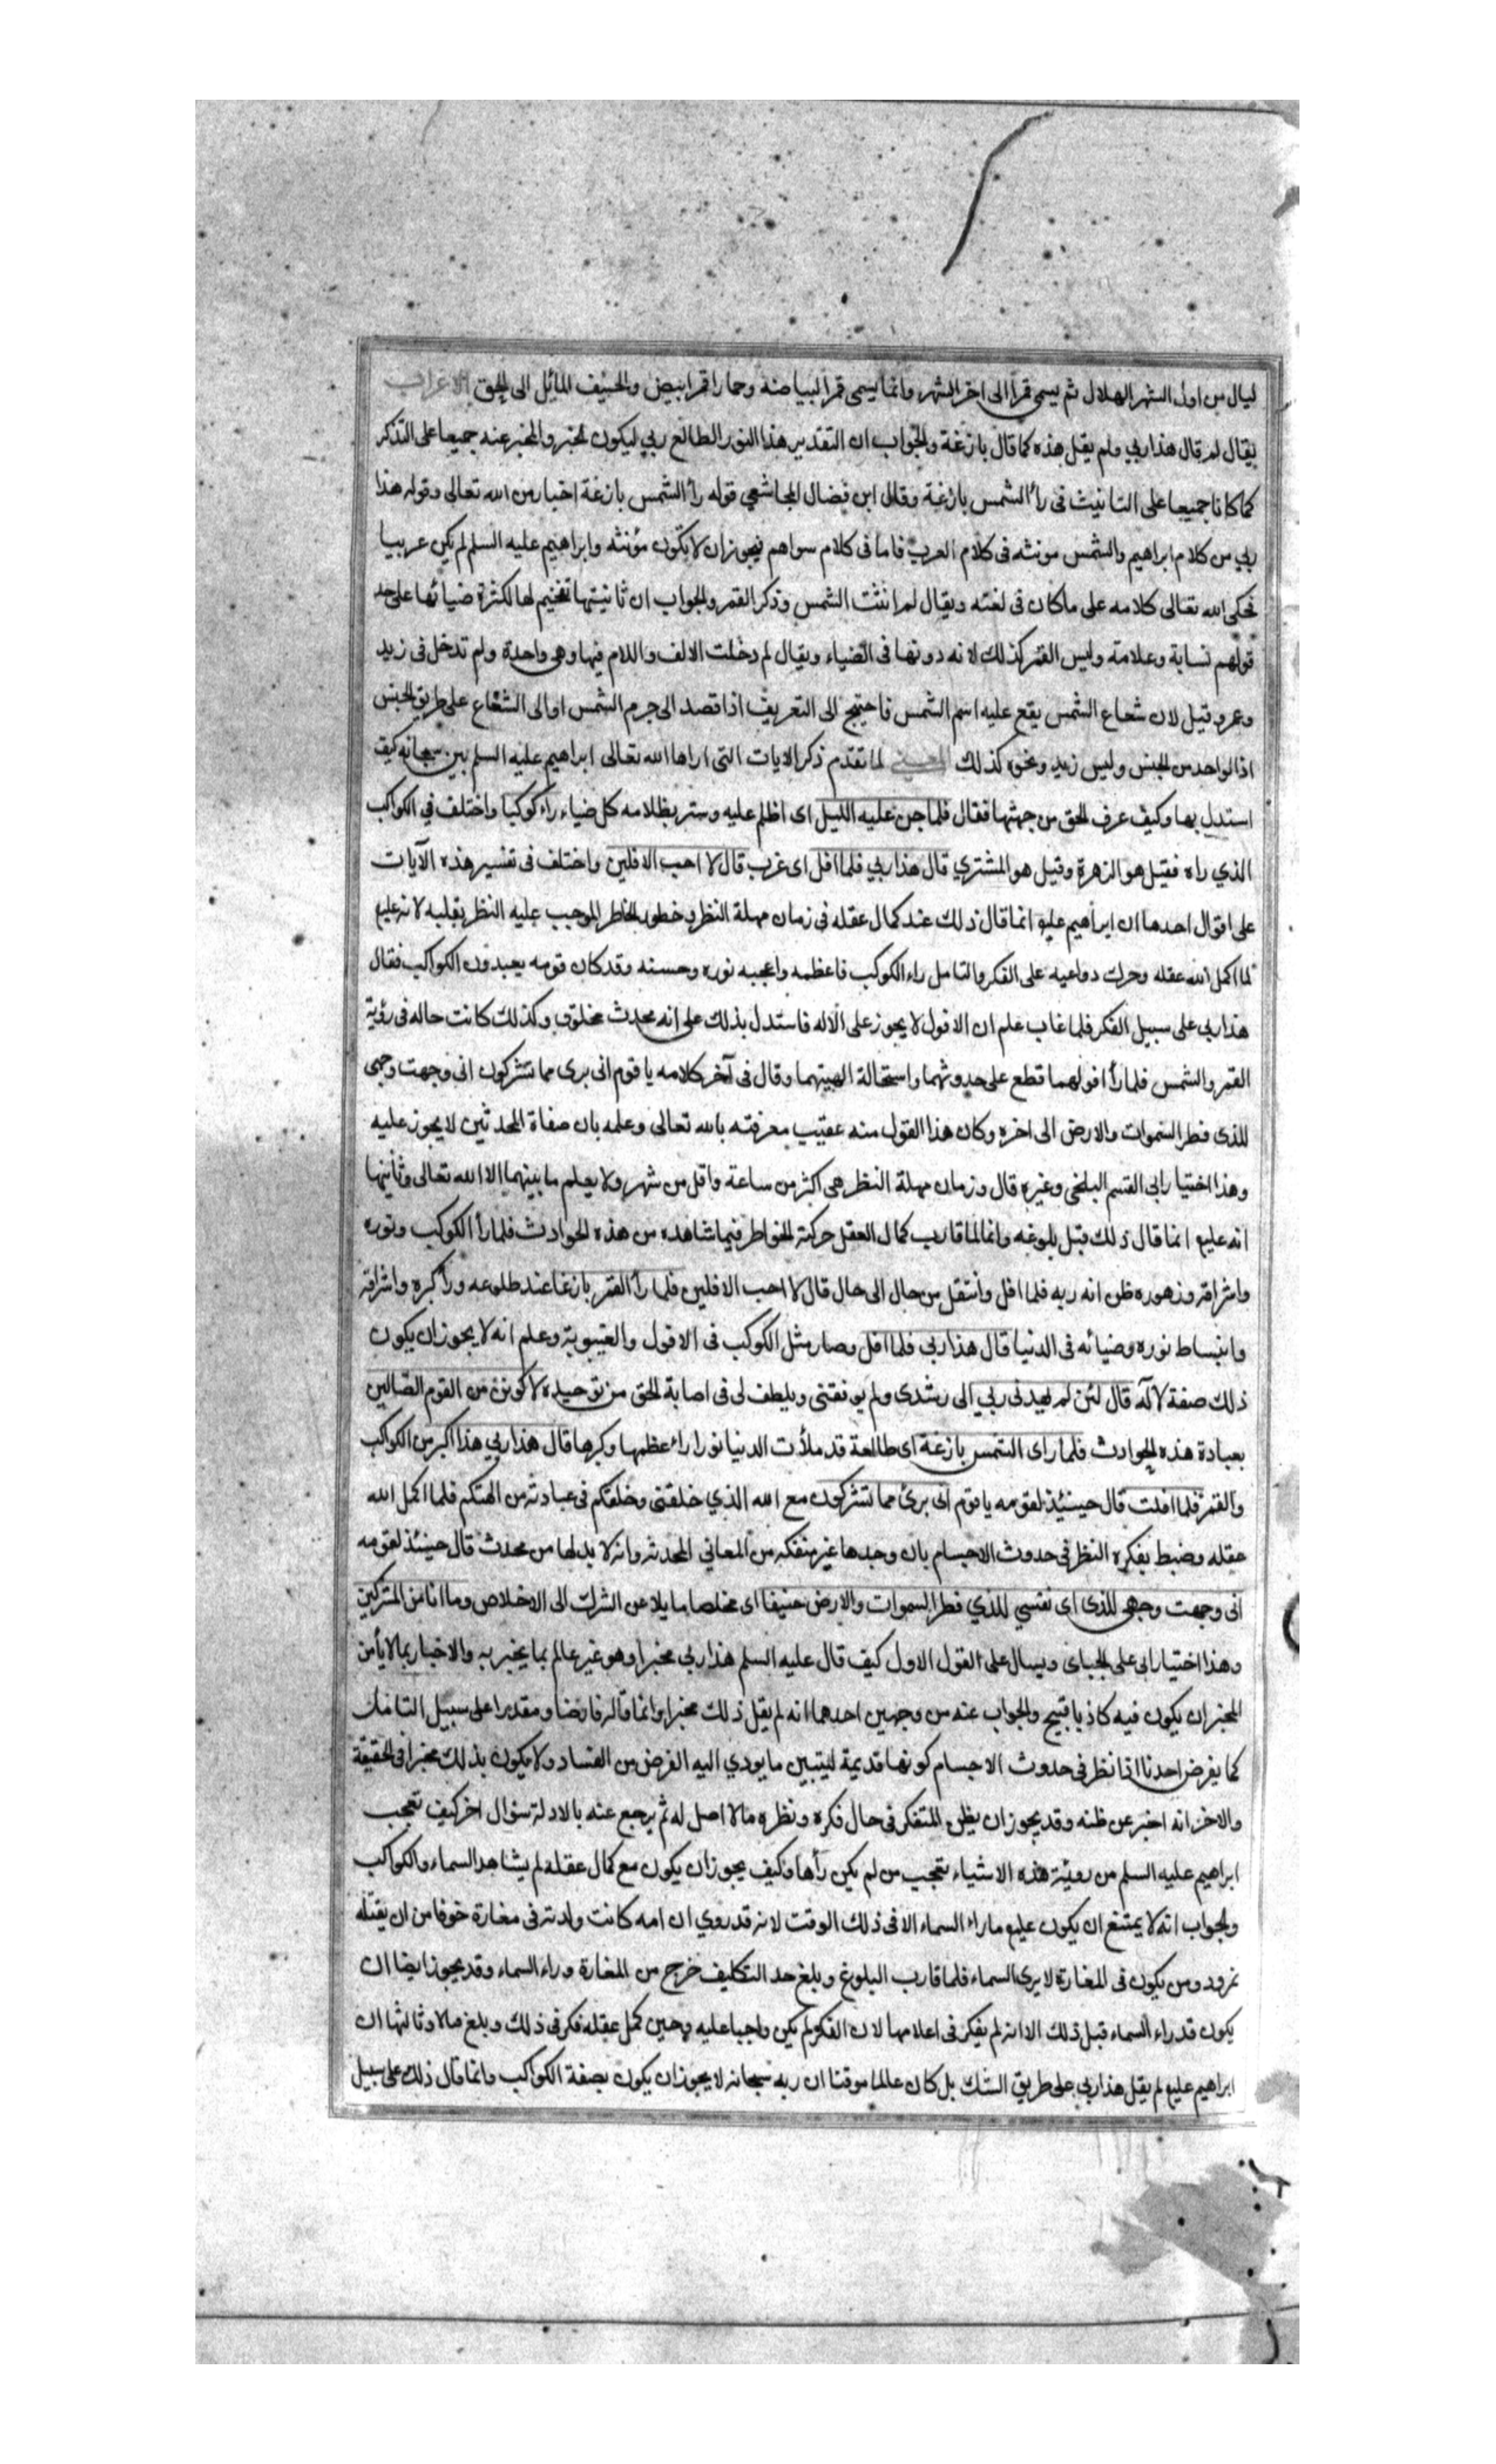 ليال من اول الشهر الهلال ثم يسمى قمرا الى اخر الشهر وانما يسمى قمرا لبياضه وحمار اقمر ابيض والحنيف المائل الى الحق الاعراب
يقال لم قال هذا ربي ولم يقل هذه كما قال بازغة والجواب ان التقدير هذا النور الطالع ربي ليكون الخبر والمخبر عنه جميعا على التذكر
كما كانا جميعا على التانيث في رأ الشمس بازغة وقال ابن فضال المجاشعي قوله رأ الشمس بازغة اخبار من الله تعالى وقوله هذا
ربي من كلام ابراهيم والشمس مونثه في كلام العرب فاما في كلام سواهم فيجوز ان لا يكون مؤنثه وابراهيم عليه السلم لم يكن عربيا
فحكى الله تعالى كلامه على ما كان في لغته ويقال لم انثت الشمس وذكر القمر والجواب ان ثانيتها تفخيم لها لكثرة ضيائها على حد
قولهم نسابة وعلامة وليس القمر كذلك لانه دونها في الضياء ويقال لم دخلت الالف واللام فيها وهي واحدة ولم تدخل في زيد
وعمرو قيل لان شعاع الشمس يقع عليه اسم الشمس فاحتيج الى التعريف اذا قصد الى جرم الشمس او الى الشعاع على طريق الجنس
اذا لواحد من الجنس وليس زيد ونحوه كذلك المعنى لما تقدم ذكر الايات التي اراها الله تعالى ابراهيم عليه السلم بين سبحانه كيف
استدل بها وكيف عرف الحق من جهتها فقال فلما جن عليه الليل اى اظلم عليه وستر بظلامه كل ضياء راء كوكبا واختلف في الكواكب
الذي راه فقيل هو الزهرة وقيل هو المشتري قال هذا ربي فلما افل اى غرب قال لا احب الافلين واختلف في تفسير هذه الآيات
على اقوال احدها ان ابراهيم عليه انما قال ذلك عند كمال عقله في زمان مهلة النظر وخطور الخاطر الموجب عليه النظر بقلبه لانه عليه
لما اكمل الله عقله وحرك دواعيه على الفكر والتامل راء الكوكب فاعظمه واعجبه نوره وحسنه وقد كان قومه يعبدون الكواكب فقال
هذا ربي على سبيل الفكر فلما غاب علم ان الافول لا يجوز على الاله فاستدل بذلك على انه محدث مخلوق وكذلك كانت حاله في رؤية
القمر والشمس فلما رأ افولهما قطع على حدوثهما واستحالة الهيتهما وقال في آخر كلامه يا قوم انى برى مما تشركون انى وجهت وجهى
للذى فطر السموات والارض الى اخره وكان هذا القول منه عقيب معرفته بالله تعالى وعلمه بان صفاة المحدثين لا يجوز عليه
وهذا اختيار ابى القسم البلخى وغيره قال وزمان مهلة النظر هى اكثر من ساعة واقل من شهر ولا يعلم ما بينهما الا الله تعالى وثانيها
انه عليه انما قال ذلك قبل بلوغه وانما لما قارب كمال العقل حركته الخواطر فيما شاهده من هذه الحوادث فلما رأ الكوكب ونوره
واشراقه وزهوره ظن انه ربه فلما افل وانتقل من حال الى حال قال لا احب الافلين فلما رأ القمر بازغا عند طلوعه ورأ كبره واشراقه
وانبساط نوره وضيائه في الدنيا قال هذا ربي فلما افل وصار مثل الكوكب في الافول والغيبوبة وعلم انه لا يجوز ان يكون
ذلك صفة لاله قال لئن لم يهدنى ربي الى رشدى ولم يوفقنى ويلطف لى في اصابة الحق من توحيده لاكونن من القوم الضالين
بعبادة هذه الحوادث فلما راى الشمس بازغة اى طالعة قد ملأت الدنيا نورا راء عظمها وكبرها قال هذا ربي هذا اكبر من الكواكب
والقمر فلما افلت قال حينئذ لقومه يا قوم انى برئ مما تشركون مع الله الذي خلقنى وخلقكم في عبادته من الهتكم فلما اكمل الله
عقله وضبط بفكره النظر في حدوث الاجسام بان وجدها غير منفكه من المعاني المحدثه وانه لا بد لها من محدث قال حينئذ لقومه
انى وجهت وجهى للذى اى نفسي للذي فطر السموات والارض حنيفا اى مخلصا مايلا عن الشرك الى الاخلاص وما انا من المشركين
وهذا اختيار ابى على الجباى ويسال على القول الاول كيف قال عليه السلم هذا ربي مخبرا وهو غير عالم بما يخبر به والاخبار بما لا يأمن
المخبر ان يكون فيه كاذبا قبيح والجواب عنه من وجهين احدهما انه لم يقل ذلك مخبرا وانما قاله فارضا ومقدرا على سبيل التامل
كما يفرض احدنا اذا نظر في حدوث الاجسام كونها قديمة ليتبين ما يودي اليه الفرض من الفساد ولا يكون بذلك مخبرا في الحقيقة
والاخر انه اخبر عن ظنه وقد يجوز ان يظن المتفكر في حال فكره ونظره ما لا اصل له ثم يرجع عنه بالادلة سؤال اخر كيف تعجب
ابراهيم عليه السلم من روئية هذه الاشياء تعجب من لم يكن رأها وكيف يجوز ان يكون مع كمال عقله لم يشاهد السماء والكواكب
والجواب انه لا يمتنع ان يكون عليه ما راء السماء الا في ذلك الوقت لانه قد روي ان امه كانت ولدته في مغارة خوفا من ان يقتله
نمرود ومن يكون في المغارة لا يرى السماء فلما قارب البلوغ وبلغ حد التكليف خرج من المغارة وراء السماء وقد يجوز ايضا ان
يكون قد راء السماء قبل ذلك الا انه لم يفكر في اعلامها لان الفكر لم يكن واجبا عليه وحين كمل عقله فكر في ذلك وبلغ مالا وثالثها ان
ابراهيم عليه لم يقل هذا ربي على طريق الشك بل كان عالما موقنا ان ربه سبحانه لا يجوز ان يكون بصفة الكواكب وانما قال ذلك على سبيل